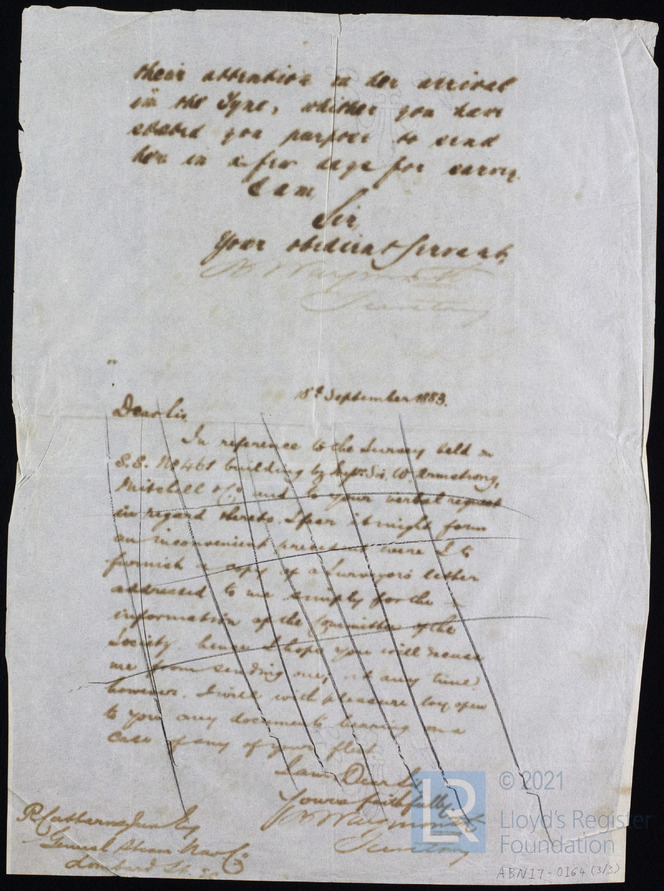 their attention on her arrival
in the Tyne, whither you have
stated you purpose to send
her in a few days for survey.
I am,
Sir,
Your obedient Servant,
Secretary
18th September 1883.
Dear Sir,
In reference to the Survey held in
S.S. No 461 building by Messrs Sir W. Armstrong,
Mitchell & Co. and to your verbal request
in regard thereto, I fear it might form
an inconvenient precedent were I to
furnish a copy of a Surveyor's letter
addressed to me simply for the
information of the Committee of the
Society, hence I hope you will excuse
me from sending one, at any time
however, I will with pleasure lay open
to you any documents bearing on a
case of any of your fleet
I am Dear Sir,
Yours faithfully
Secretary
General Steam Nav. Co.
Lombard St.
LR
© 2021
Lloyd's Register
Foundation
ABN17-0164 (3/3)